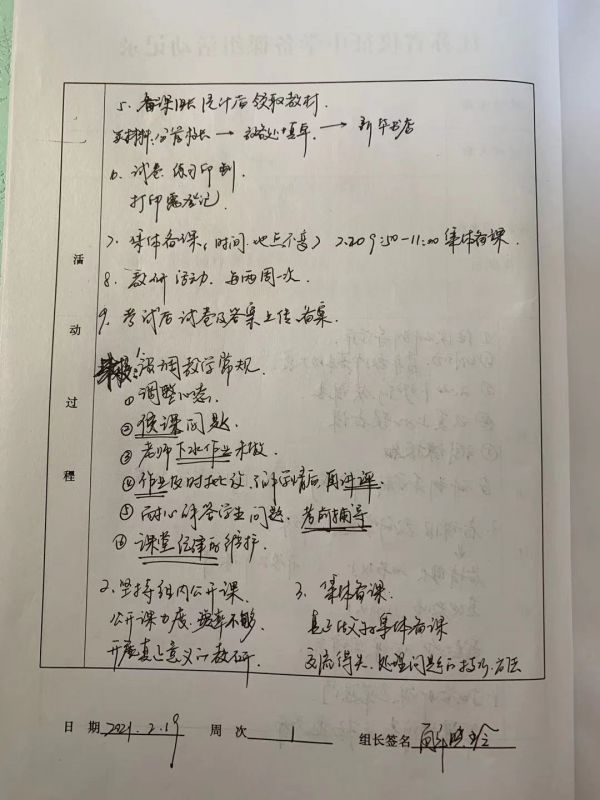 5、备课组长统计后领取教材.
→ 教务处填单 → 新华书店
6、试卷、练习印刷.
打印需登记.
7、集体备课(时间、地点不变) 2.20 9:50-11:00 集体备课.
8、教研活动、每两周一次.
9、考试后试卷及答案上传、备案.
1、强调教学常规.
①调整心态.
②候课问题.
③老师下水作业未做.
④作业及时批改、了解学情后再讲评.
⑤耐心解答学生问题、考前辅导
⑥课堂纪律的维护.
2、坚持组内公开课.
公开课力度、频率不够.
开展真正意义的教研.
3、集体备课.
真正做好集体备课
交流得失、处理问题的技巧、方法
活动过程
日 期 2021.2.19 周 次 1 组长签名